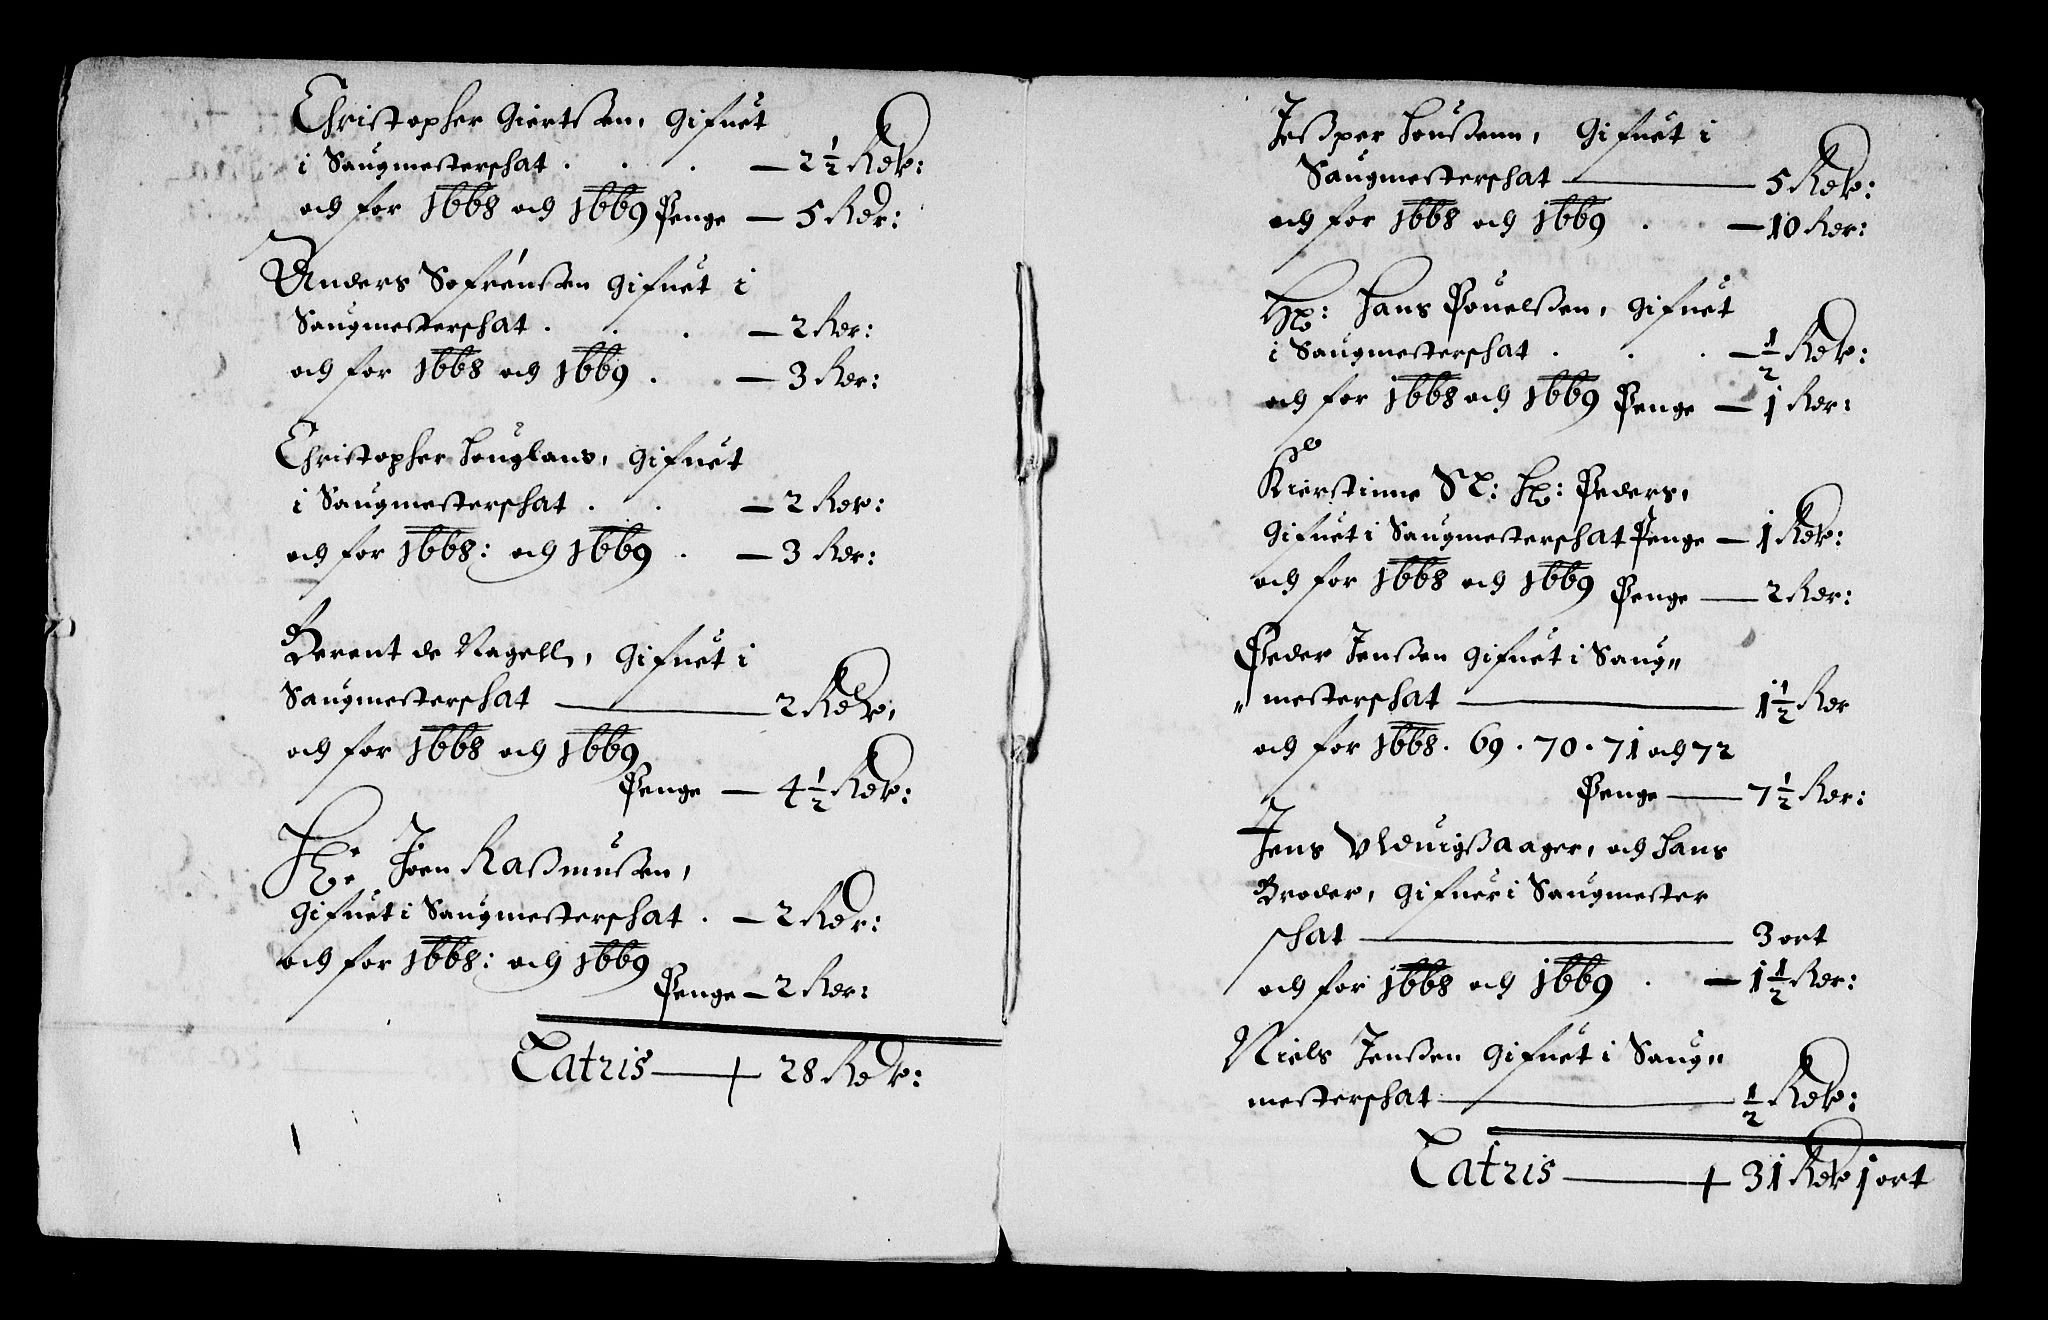 Christopher Giertsen, Gifuet
i Saugmesterschat . . . — 2½ Rdr:
och for 1668 och 1669 Penge — 5 Rdr:
Anders Sofrensen Gifuet i
Saugmesterschat . . . — 2 Rdr:
och for 1668 och 1669 . — 3 Rdr:
Christopher Gifuet
i Saugmesterschat . . — 2 Rdr:
och for 1668: och 1669 . — 3 Rdr:
Berent de Nagell, Gifuet i
Saugmesterschat — 2 Rdr,
och for 1668 och 1669
Penge — 4½ Rdr:
Hr: Joen Rasmusen,
Gifuet i Saugmesterschat . — 2 Rdr:
och for 1668: och 1669
Penge — 2 Rdr:
Latris — + 28 Rdr:
Jesper Gifuet i
Saugmesterschat — 5 Rdr:
och for 1668 och 1669 . — 10 Rdr:
Hr: Hans Pouelsen, Gifuet
i Saugmesterschat . . . — ½ Rdr:
och for 1668 och 1669 Penge — 1 Rdr:
Kierstinne Sl: Hr: Peders,
Gifuet i Saugmesterschat Penge — 1 Rdr:
och for 1668 och 1669 Penge — 2 Rdr:
Peder Jensen Gifuet i Saug„
„mesterschat — 1½ Rdr
och for 1668. 69. 70. 71 och 72
Penge — 7½ Rdr:
Jens och Hans
Broder, Gifuer i Saugmester
schat — 3 ort
och for 1668 och 1669 . — 1½ Rdr:
Niels Jensen Gifuet i Saug„
mesterschat — ½ Rdr:
Latris — + 31 Rdr 1 ort